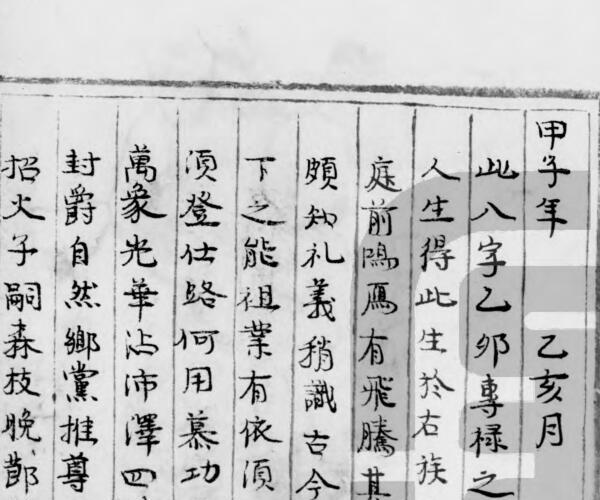 甲子年 乙亥月
此八字乙卯專祿之
人生得此生於右族
庭前鴻鴈有飛騰其
頗知礼義稍識古今
下之能祖業有依須
須登仕路何用慕功
萬象光華沾沛澤四
封爵自然鄉黨推尊
招火子嗣森枝晚節